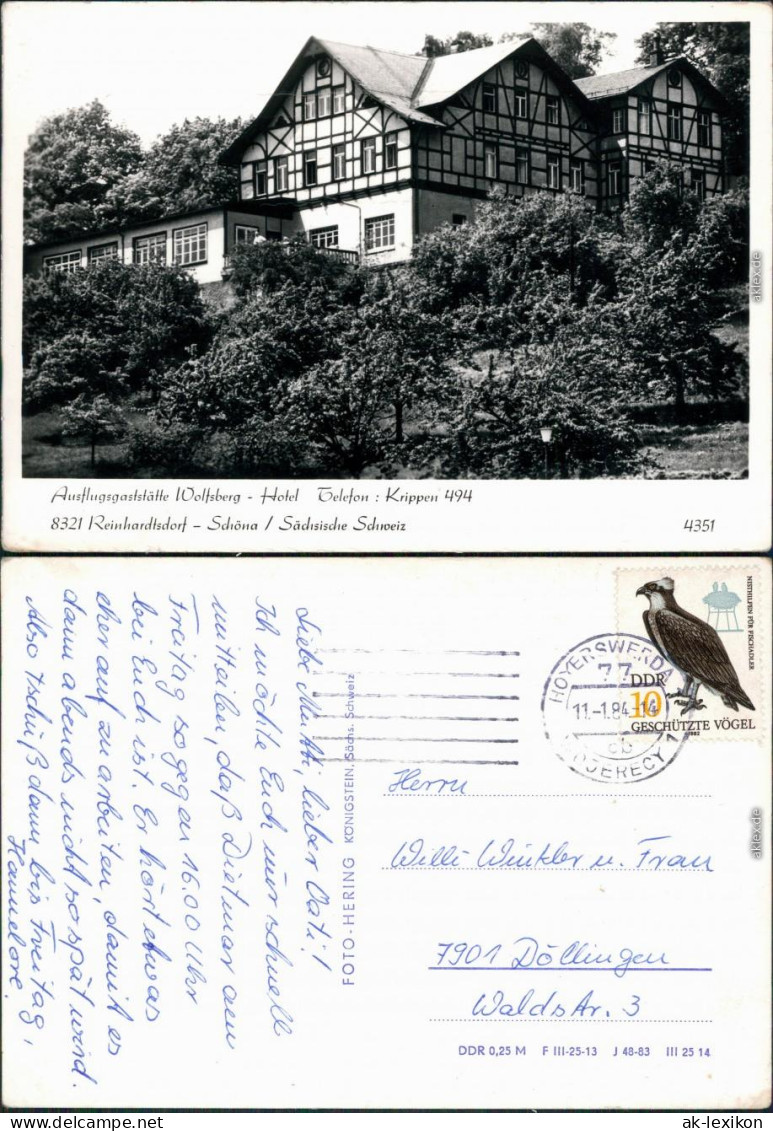 Ausflugsgaststätte Wolfsberg - Hotel Telefon : Krippen 494
8321 Reinhardtsdorf - Schöna / Sächsische Schweiz 4351
Liebe Mutti, lieber Vati!
Ich möchte Euch nur schnell
mitteilen, daß Dietmar am
Freitag so gegen 16.00 Uhr
bei Euch ist. Er hört etwas
eher auf zu arbeiten, damit es
dann abends nicht so spät wird.
Also tschüß dann bis Freitag,
Hannelore.
FOTO-HERING KÖNIGSTEIN, Sächs. Schweiz
HOYERSWERDA
77
11.-1.84-14
cb
WOJERECY 1
NISTHILFEN FÜR FISCHADLER
DDR
10
GESCHÜTZTE VÖGEL
1982
Herrn
Willi Winkler u. Frau
7901 Döllingen
Waldstr. 3
DDR 0,25 M F III-25-13 J 48-83 III 25 14
akpool.de
www.ansichtskarten-lexikon.de
ak-lexikon.de